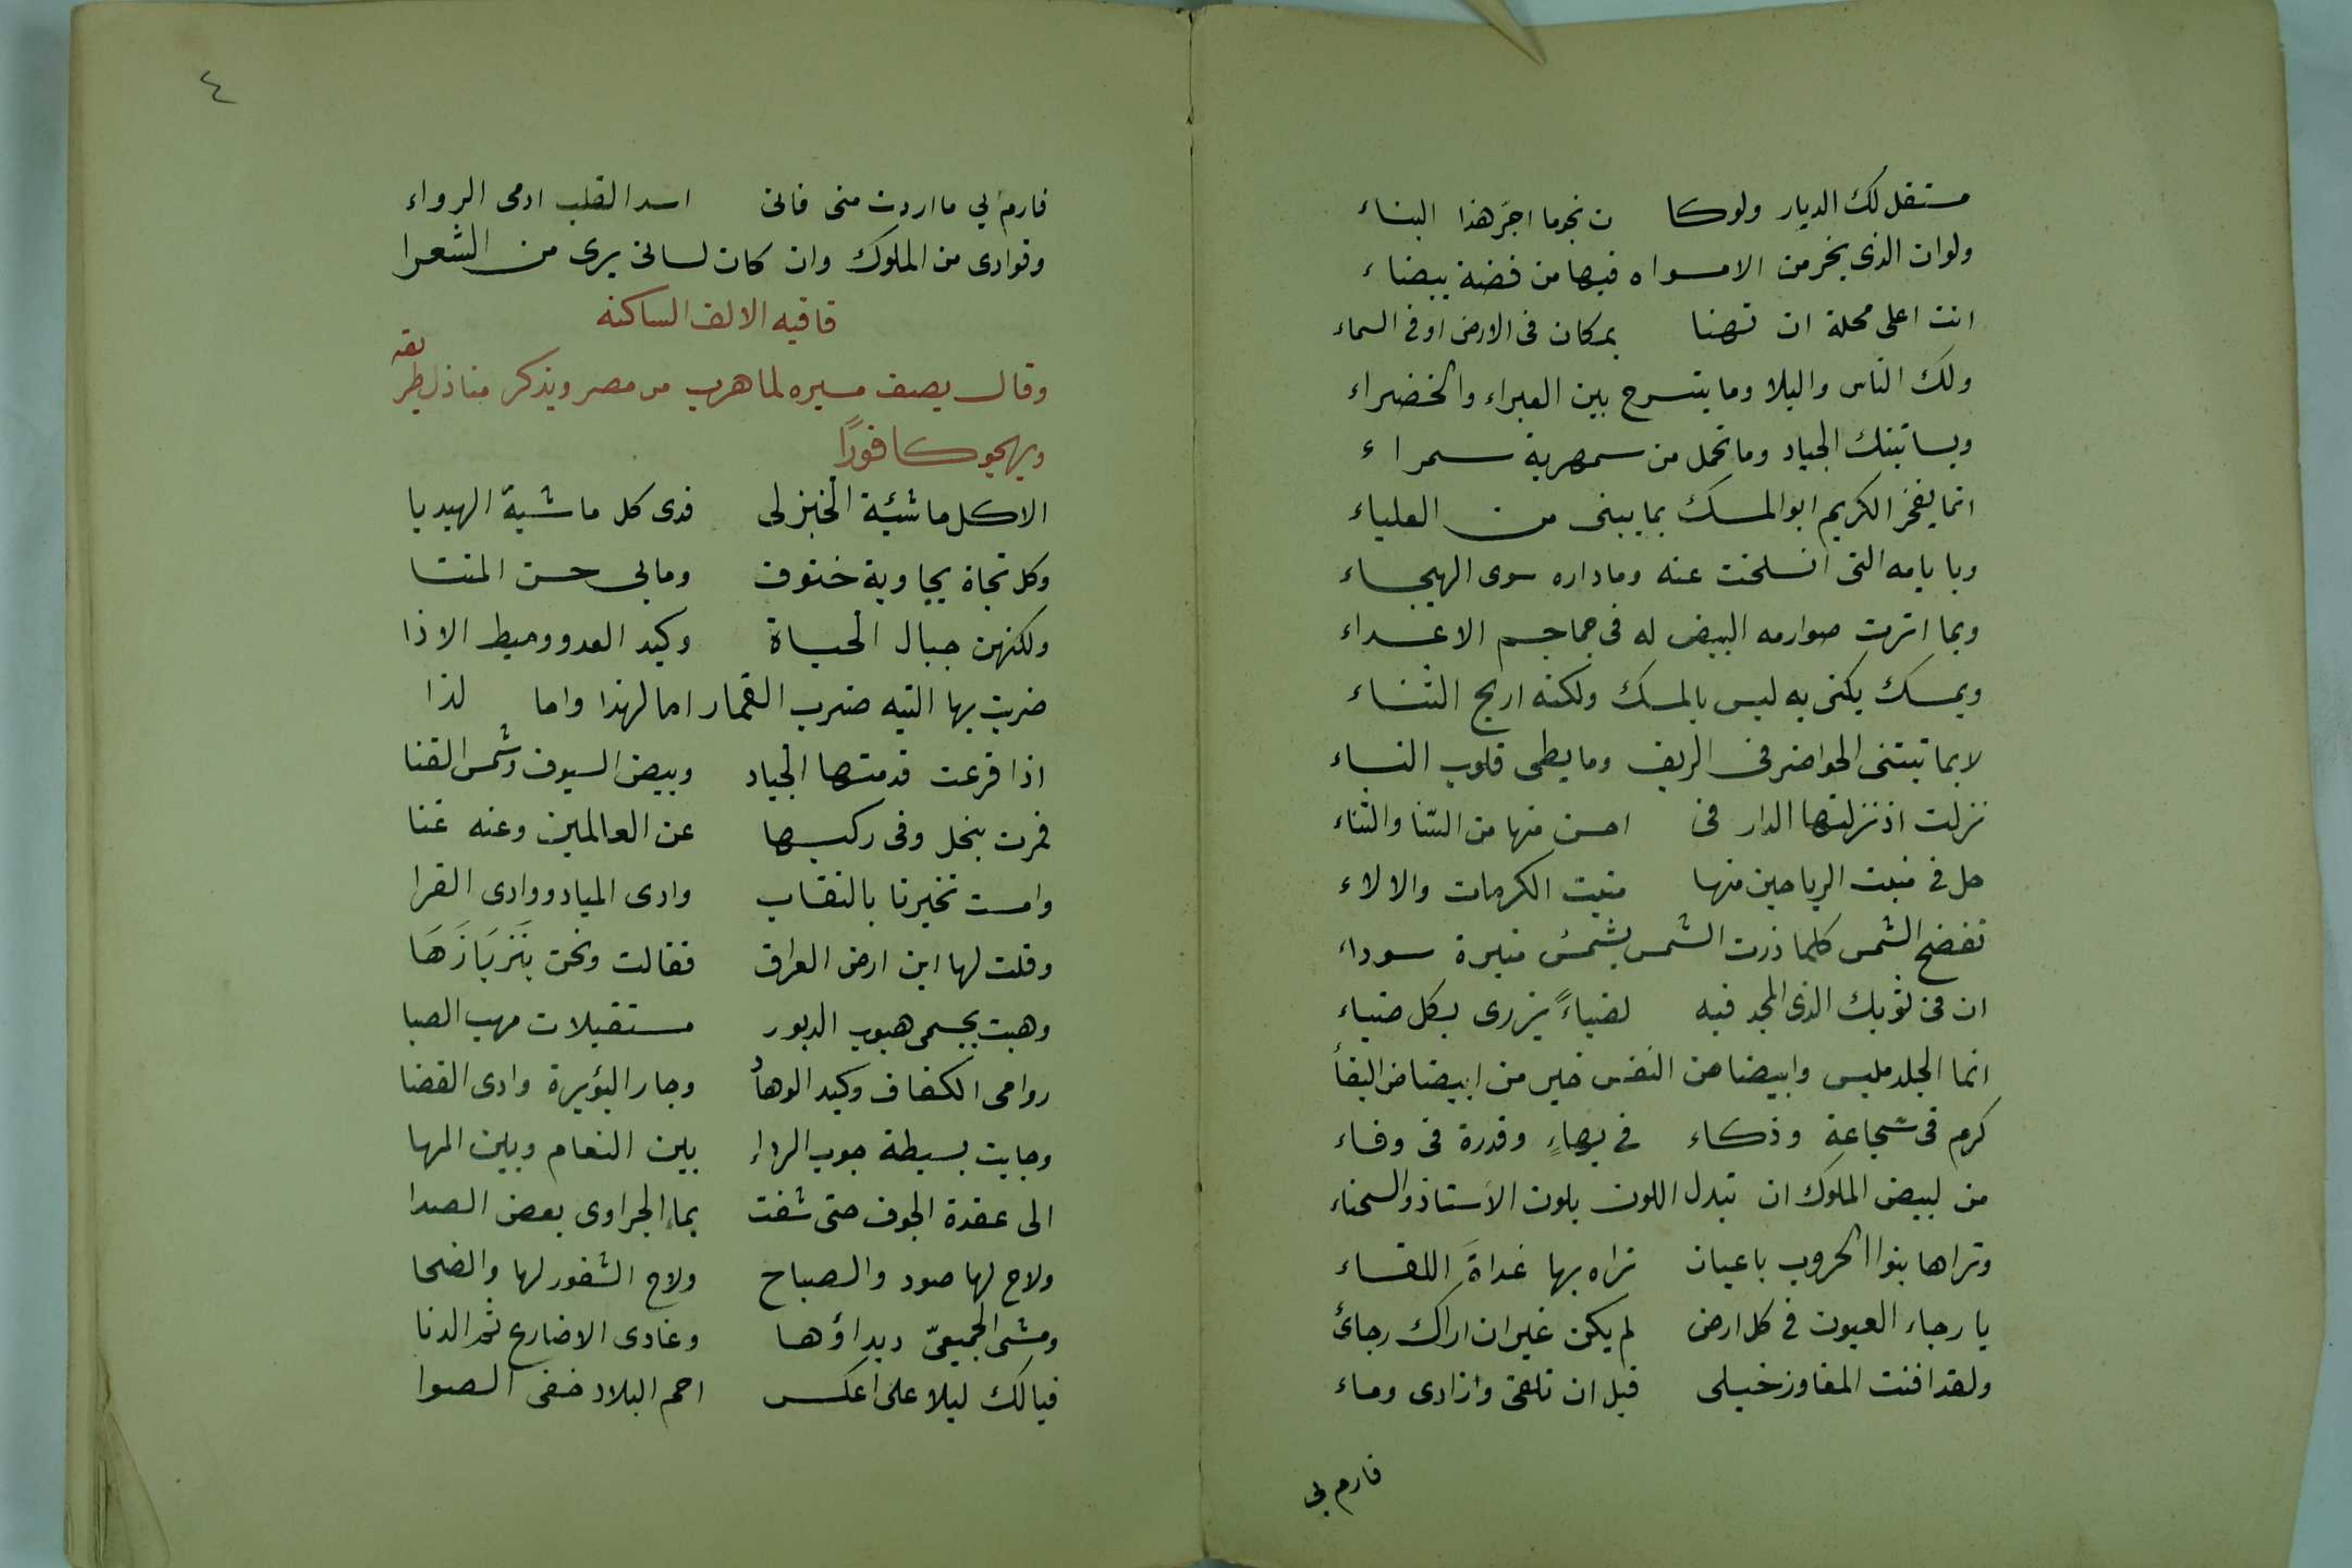 مستقل لك الديار ولوكا ن نجوما اجرّ هذا البناء
ولوان الذى يخر من الامواه فيها من فضة بيضاء
انت اعلى محلة ان تهنا بمكان فى الارض اوفى السماء
ولك الناس والبلا وما يتسرح بين الغبراء والخضراء
وبساتينك الجياد وما تحمل من سمهرية سمراء
انما يفخر الكريم ابو المسك بما يبنى من العلياء
وبايامه التى انسلخت عنه وما داره سوى الهيجاء
وبما اثرت صوارمه البيض له فى جماجم الاعداء
وبمسك يكنى به ليس بالمسك ولكنه اريج الثناء
لا بما تبتنى الحواضر فى الريف وما يطبى قلوب النساء
نزلت اذ نزلتها الدار فى احسن منها من السّنا والثناء
حل فى منبت الرياحين منها منبت الكرمات والالاء
تفضح الشمس كلما ذرت الشمس بشمس منيرة سوداء
ان فى ثوبك الذى المجد فيه لضياءً يزرى بكل ضياء
انما الجلد ملبس وابيضاض النفس خير من ابيضاض القبأ
كرم فى شجاعة وذكاء فى بهاءٍ وقدرة فى وفاء
من لبيض الملوك ان تبدل اللون بلون الاستاذ والسحناء
وتراها بنوا الحروب باعيان تراه بها غداةَ اللقاء
يا رجاء العيون فى كل ارض لم يكن غير ان اراك رجائ
ولقد افنت المفاوز خيلى قبل ان نلتقى وازادى وماء
فارم بى
٤
فارم بي ما اردت منى فانى اسد القلب ادمى الرواء
وفوادى من الملوك وان كان لسانى يرى من الشعرا
قافيه الالف الساكنه
وقال يصف مسيره لما هرب من مصر ويذكر منازل طريقه
ويهجو كافورًا
الا كل ماشئية الخيزلى فدى كل ماشية الهيدبا
وكل نجاة بجاوية خنوف ومابي حسن المشا
ولكنهن حبال الحياة وكيد العدو وميط الاذا
ضربت بها التيه ضرب القمار اما لهذا واما لذا
اذا فزعت قدمتها الجياد وبيض السيوف وشمس القنا
فمرت بنخل وفى ركبها عن العالمين وعنه غنا
وامست تخيرنا بالنقاب وادى المياد ووادى القرا
وقلت لها اين ارض العراق فقالت ونحن بَتَربَازَهَا
وهبت بجسمى هبوب الدبور مستقبلات مهب الصبا
روامى الكفاف وكبد الوهأد وجار البؤيرة وادى الغضا
وجابت بسيطة جوب الرداء بين النعام وبين المها
الى عقدة الجوف حتى شفت بماء الجراوى بعض الصدا
ولاح لها صور والصباح ولاح الشغور لها والضحا
ومشى الجميعىّ دبداؤها وغادى الاضارع ثم الدنا
فيالك ليلا على اعكس احم البلاد خفى الصوا